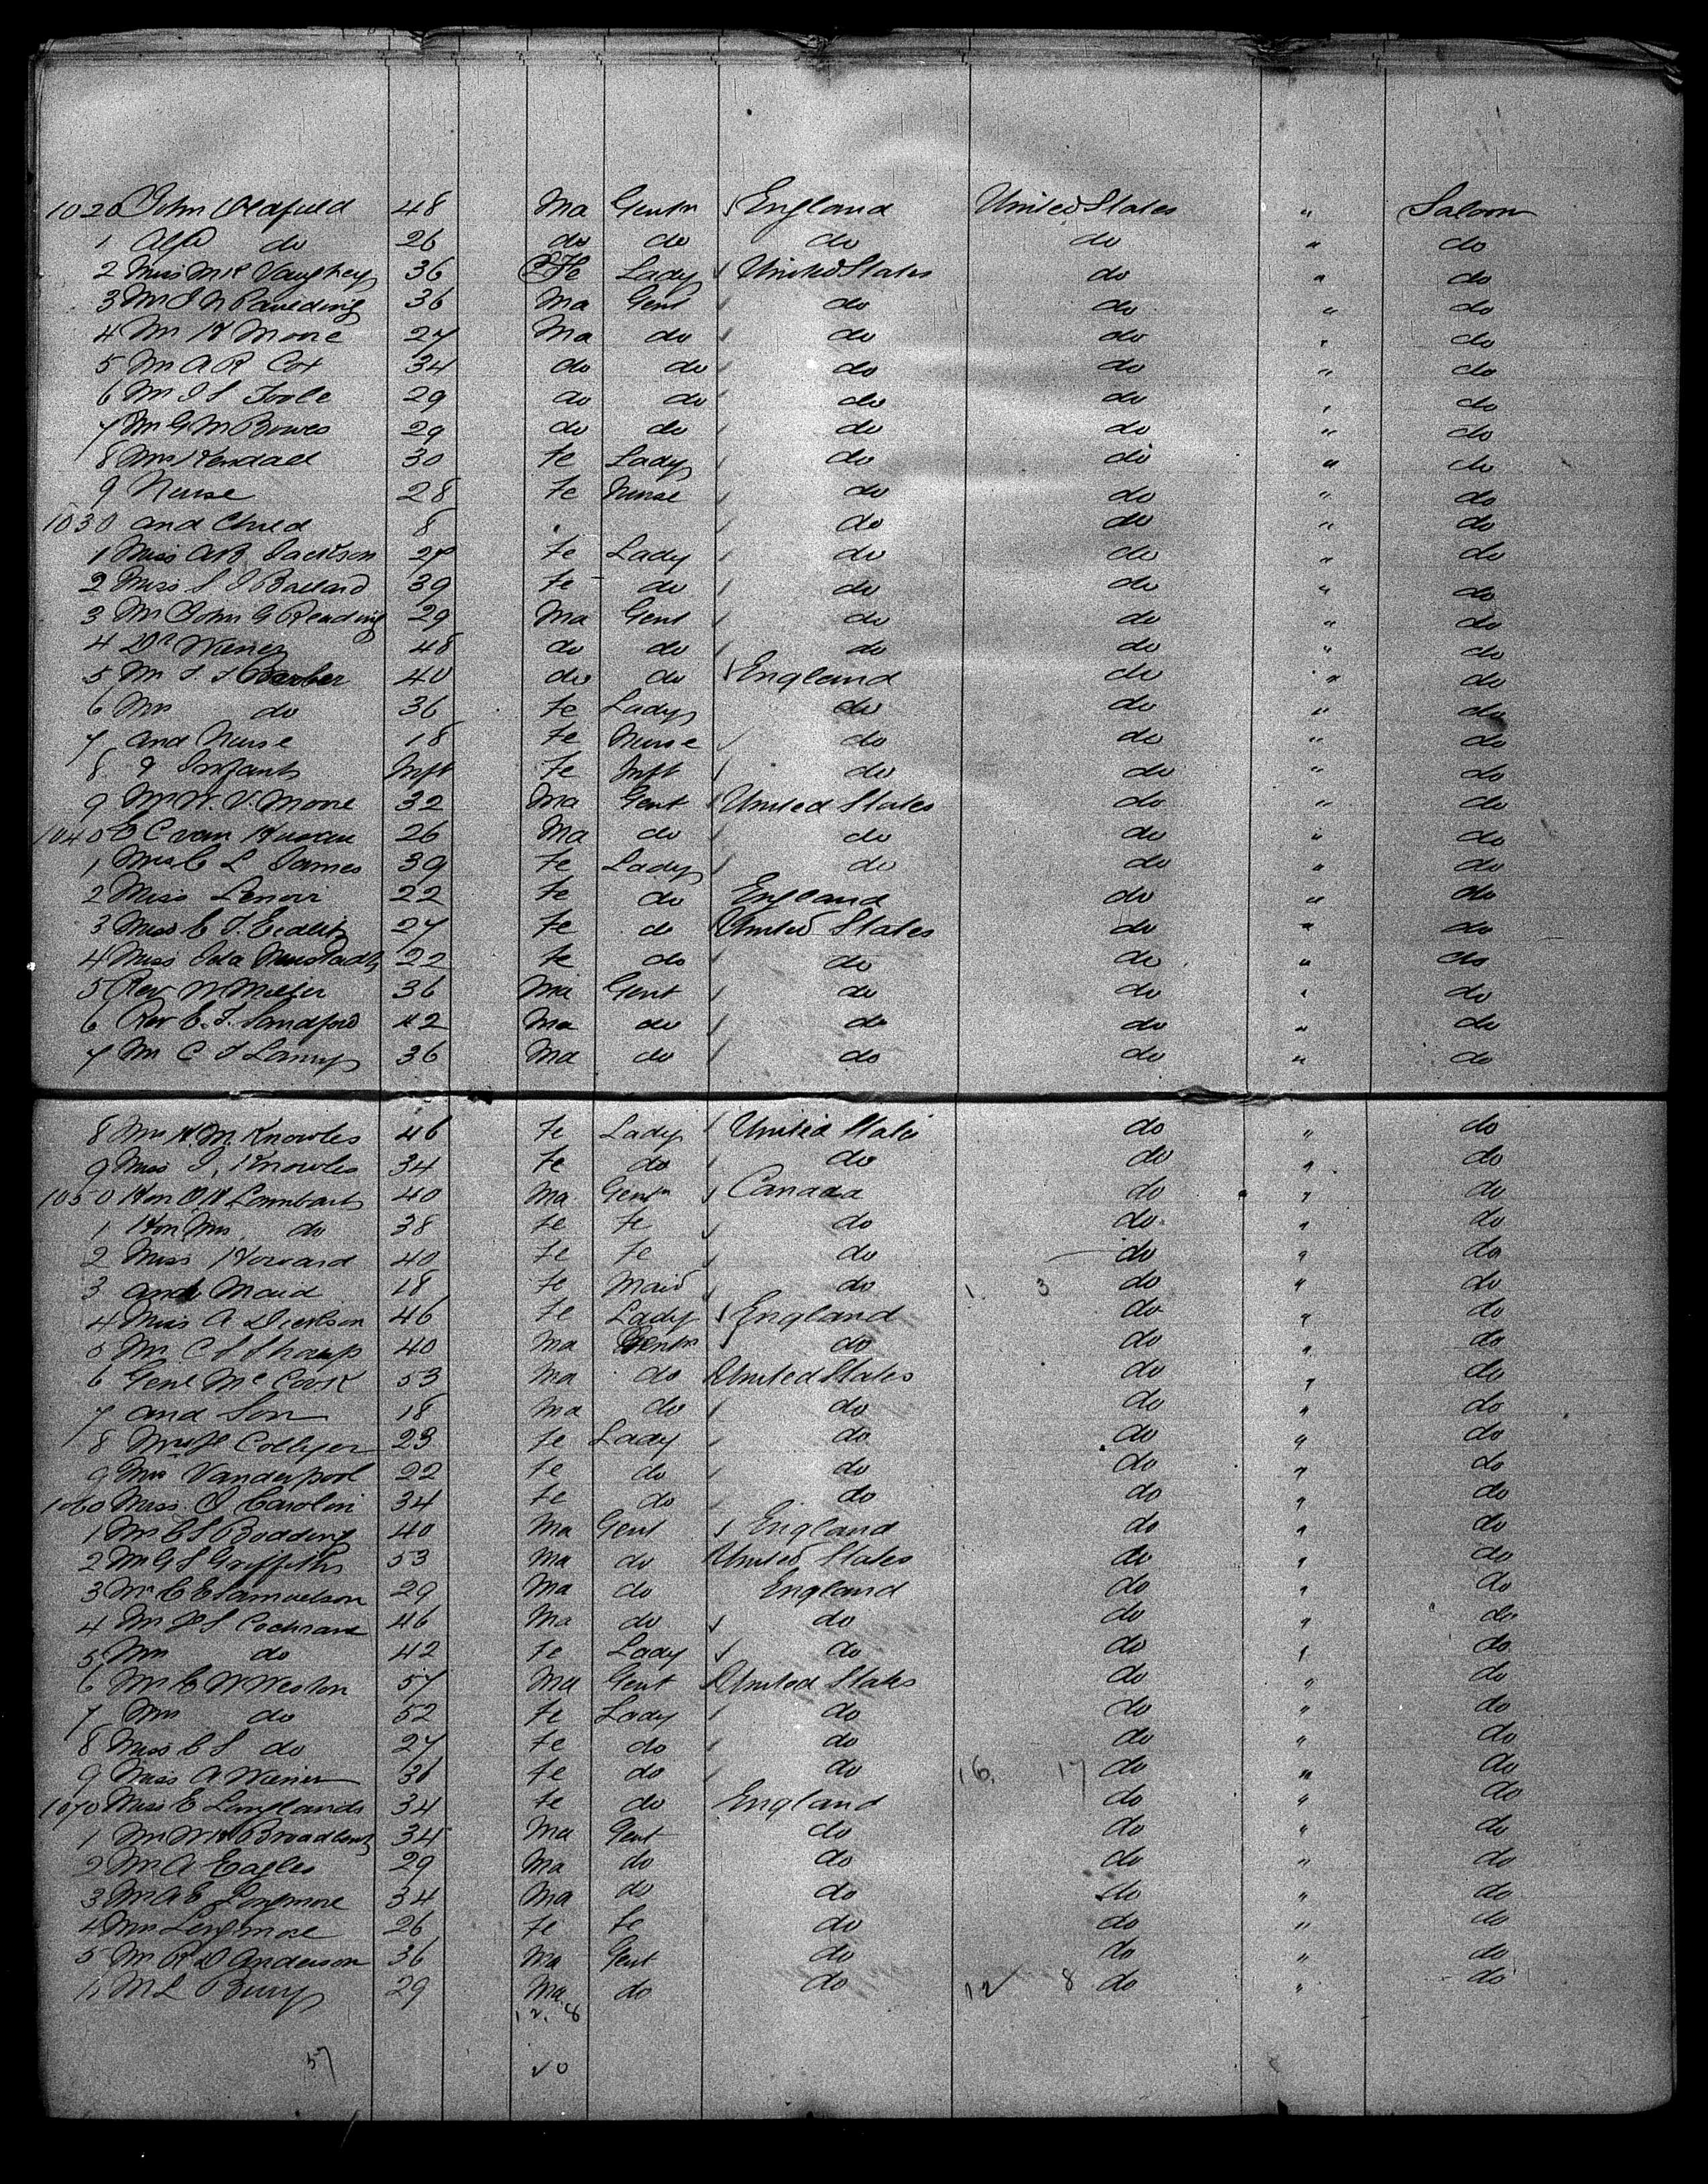 1020 John Oldfield 48 Ma Gentn England United States " Saloon
1 Alfd do 26 do do do do " do
2 Miss M K Vaughey 36 Fe Lady United States do " do
3 Mr J N Paulding 36 Ma Gent do do " do
4 Mr H Moore 27 Ma do do do " do
5 Mr A R Cox 34 do do do do " do
6 Mr J S Toole 29 do do do do " do
7 Mr G M Bowes 29 do do do do " do
8 Mrs Kendall 30 Fe Lady do do " do
9 Nurse 28 Fe Nurse do do " do
1030 and Child 8 " do do " do
1 Miss A B Jackson 27 Fe Lady do do " do
2 Miss S J Ballard 39 Fe do do do " do
3 Mr John G Reading 29 Ma Gent do do " do
4 Dr Wiener 48 do do do do " do
5 Mr J J Barber 40 do do England do " do
6 Mrs do 36 Fe Lady do do " do
7 and Nurse 18 Fe Nurse do do " do
8 & Infants Inft Fe Inft do do " do
9 Mr W. V. Moore 32 Ma Gent United States do " do
1040 E C van 26 Ma do do do " do
1 Mrs C L James 39 Fe Lady do do " do
2 Miss Lenoir 22 Fe do England do " do
3 Miss E J. Eidlitz 27 Fe do United States do " do
4 Miss Ida Neustadt 22 Fe do do do " do
5 Rev W 36 Ma Gent do do " do
6 Rev E. T. Sandford 42 Ma do do do " do
7 Mr C J Lamy 36 Ma do do do " do
8 Mrs H. M. Knowles 46 Fe Lady United States do " do
9 Miss J. Knowles 34 Fe do do do " do
1050 Hon O H Lambart 40 Ma Gentn Canada do " do
1 Hon Mrs. do 38 Fe Fe do do " do
2 Miss Howard 40 Fe Fe do do " do
3 and Maid 18 Fe Maid do 1. 3 do " do
4 Miss A Dickson 46 Fe Lady England do " do
5 Mr C S Sharp 40 Ma Gentn do do " do
6 Genl Mc Cook 53 Ma do United States do " do
7 and Son 18 Ma do do do " do
8 Mrs H Collyer 23 Fe Lady do do " do
9 Mrs Vanderpool 22 Fe do do do " do
1060 Miss J Carolin 34 Fe do do do " do
1 Mr C S Bodding 40 Ma Gent England do " do
2 Mr G S Griffiths 53 Ma do United States do " do
3 Mr C E Samuelson 29 Ma do England do " do
4 Mr H S Cochrane 46 Ma do do do " do
5 Mrs do 42 Fe Lady do do " do
6 Mr E W Weston 57 Ma Gent United States do " do
7 Mrs do 52 Fe Lady do do " do
8 Miss C S do 27 Fe do do do " do
9 Miss A Wiener 36 Fe do do 16. 17 do " do
1070 Miss E Langlands 34 Fe do England do " do
1 Mr W H Broadbent 34 Ma Gent do do " do
2 Mr A Eagles 29 Ma do do do " do
3 Mr A E Longmore 34 Ma do do do " do
4 Mrs Longmore 26 Fe Fe do do " do
5 Mr R D Anderson 36 Ma Gent do do " do
6 M L Berry 29 Ma do do 12 8 do " do
12. 8
57 20